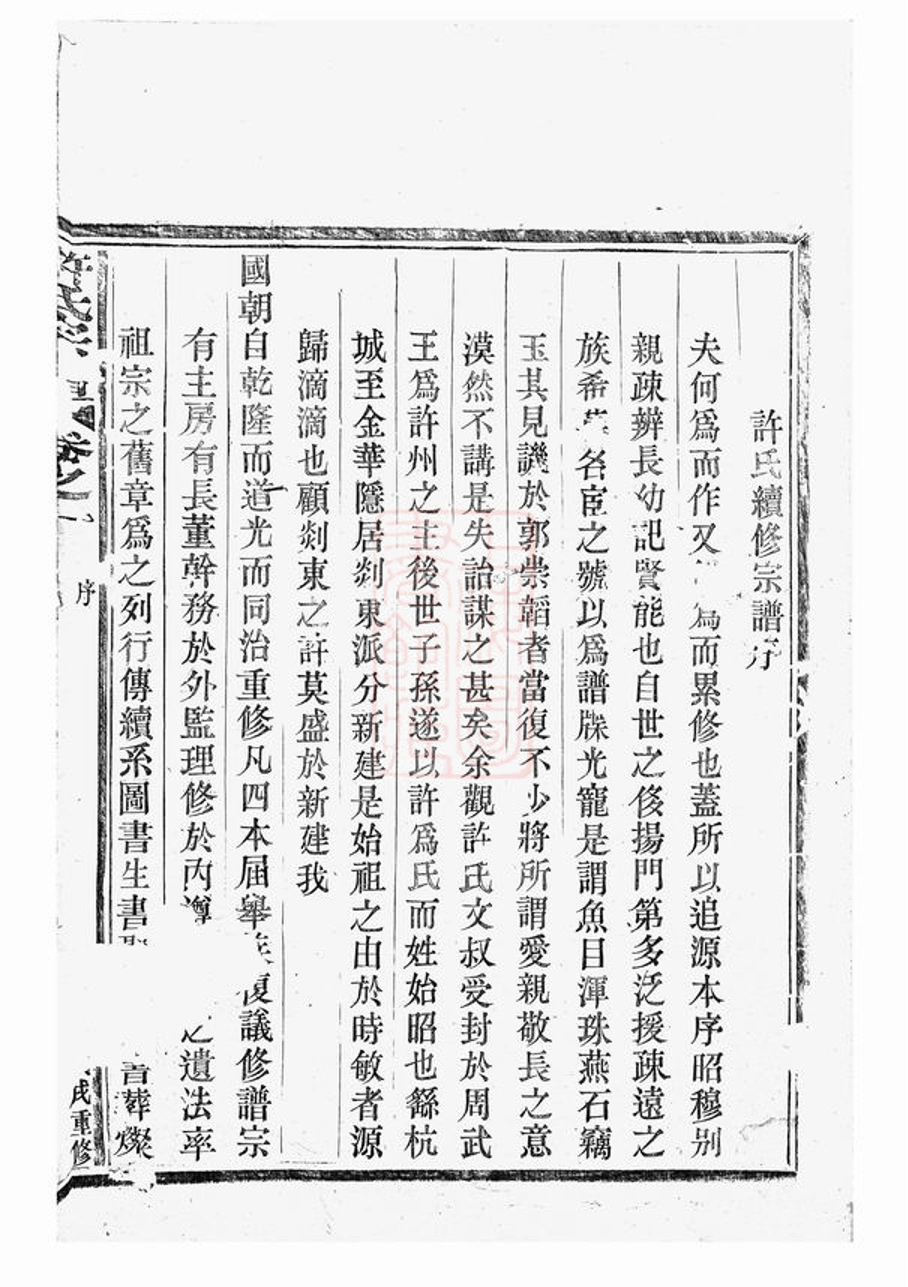 許氏續修宗譜序
夫何爲而作又爲而累修也蓋所以追源本序昭穆别
親疎辨長幼記賢能也自世之後揚門第多泛援疎遠之
族希名臣之號以爲譜牒光寵是謂魚目渾珠燕石竊
玉其見譏於郭崇韜者當復不少將所謂愛親敬長之意
漠然不講是失詒謀之甚矣余觀許氏文叔受封於周武
王爲許州之主後世子孫遂以許爲氏而姓始昭也繇杭
城至金華隱居剡東派分新建是始祖之由於時敏者源
歸滴滴也顧剡東之許莫盛於新建我
國朝自乾隆而道光而同治重修凡四本届舉族復議修譜宗
有主房有長董幹務於外監理修於内遵之遺法率
祖宗之舊章爲之列行傳續系圖書生書葬燦
許氏宗譜 卷之一 序 氏重修